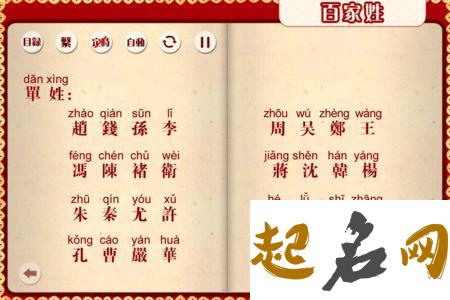 百家姓
目録 繁 定時 自動
dān xìng
單 姓：
zhào qián sūn lǐ
趙 錢 孫 李
féng chén chǔ wèi
馮 陳 褚 衛
zhū qín yóu xǔ
朱 秦 尤 許
kǒng cáo yán huà
孔 曹 嚴 華
zhōu wú zhèng wáng
周 吴 鄭 王
jiǎng shěn hán yáng
蔣 沈 韓 楊
起名网